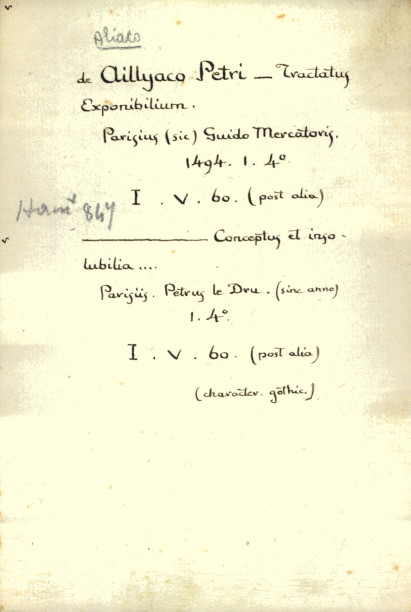 Aliaco
de Aillyaco Petri — Tractatus
Exponibilium.
Parisius (sic) Guido Mercatoris.
1494. 1. 4º
I. V. 60. (post alia)
847
———— Conceptus et inso-
lubilia ....
Parisiis. Petrus le Dru. (sine anno)
1. 4º.
I. V. 60. (post alia)
(character. gothic.)